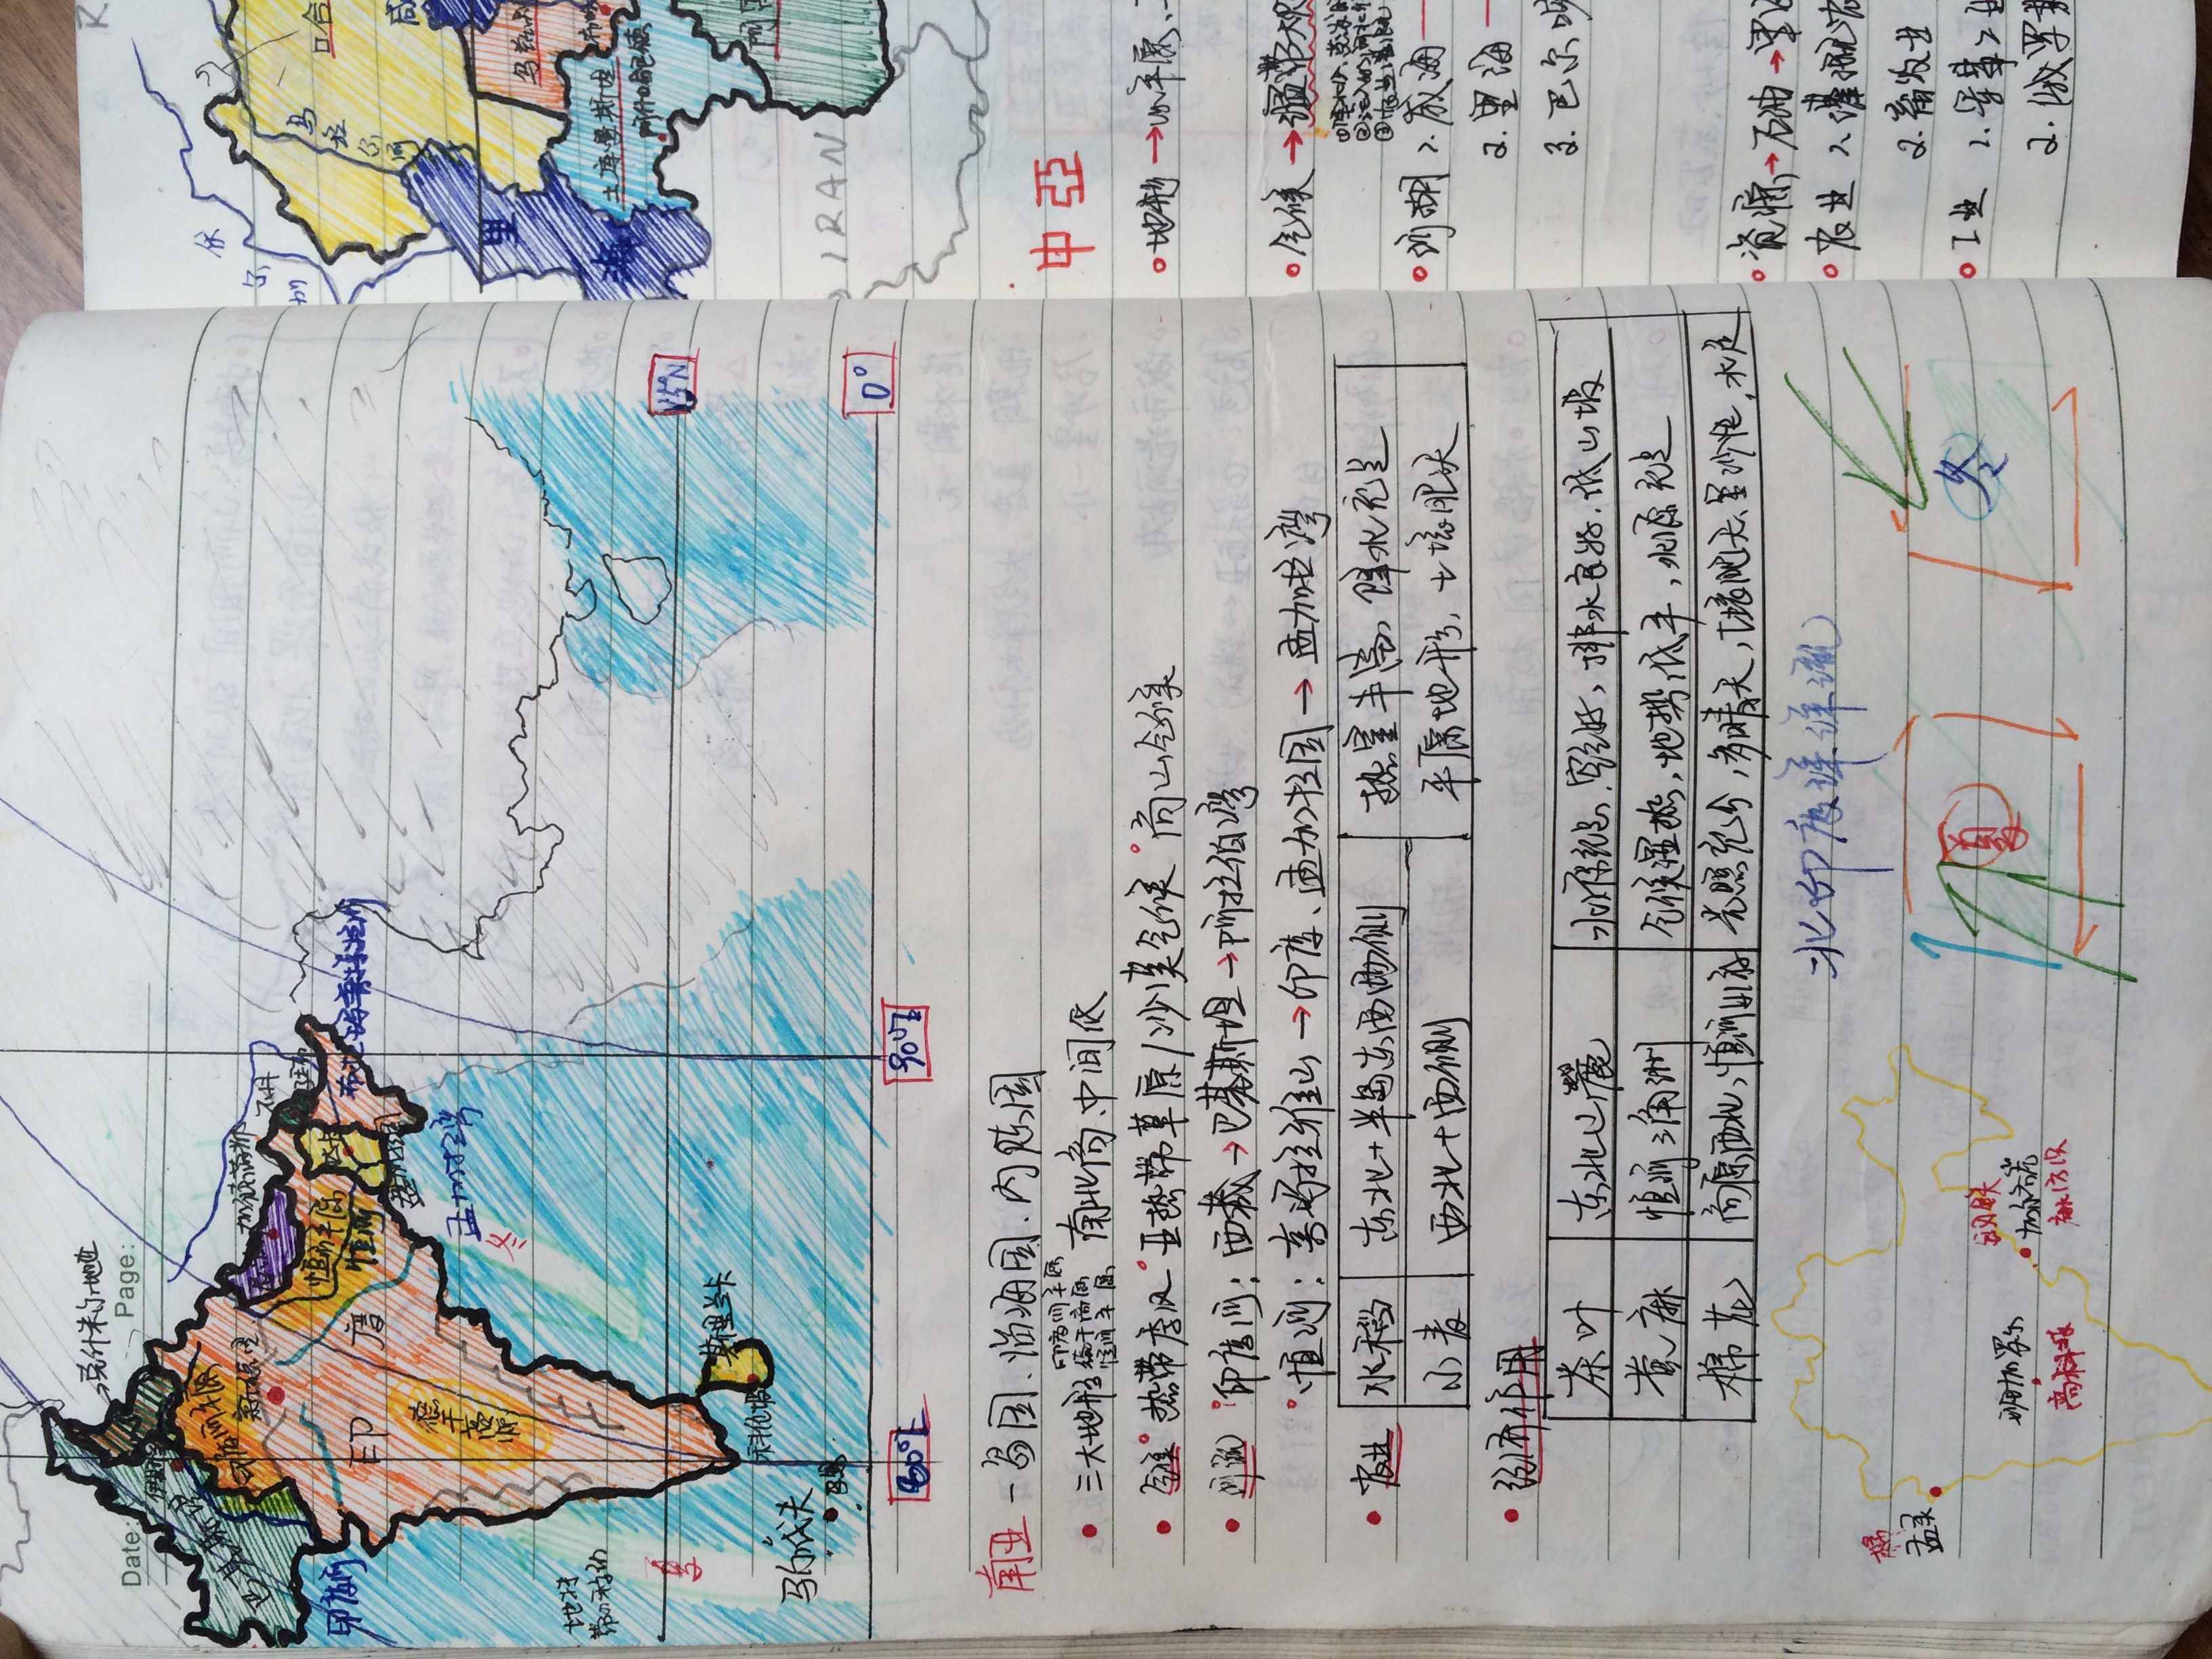 克什米尔地区
Date:
Page:
巴基斯坦
印度河平原
新德里
加德满都
不丹
印度河
恒河平原
达卡
恒河
布拉马普特拉河
印 度
孟加拉国
德干高原
孟加拉湾
冬
夏
15°N
斯里兰卡
科伦坡
马尔代夫
0°
80°E
90°E
南亚-岛国、临海国、内陆国
三大地形 印度河平原 德干高原 恒河平原 南北高、中间低
气候 热带季风 亚热带草原/沙漠气候 高山气候
河流 印度河:西藏→巴基斯坦→阿拉伯湾
恒河:喜玛拉雅山→印度、孟加拉国→孟加拉湾
农业 水稻 东北+半岛东西两侧 热量丰富,降水充足
小麦 西北+西侧 平原地形,土壤肥沃
经济作用
茶叶 东北山麓
排水良好.低山坡
黄麻 恒河三角洲 气候湿热,地势低平,水源充足
棉花 高原西北、恒河
光照充分,多晴天,土壤肥沃
北印度洋洋流
棉
孟买
班加罗尔
高科技
钢铁
加尔各答
麻纺织
夏
冬
伏
尔
加
乌拉尔河
哈
咸
里
海
乌兹别
土库曼斯坦
阿什哈巴德
阿富
IRAN
中亞
地形→
平原、
气候→温带大
河湖 1.咸海—
2.里海—
3.巴尔喀
资源→石油→里
农业 1.灌溉农
2.畜牧业
工业 1.军事工业
2.俄罗斯